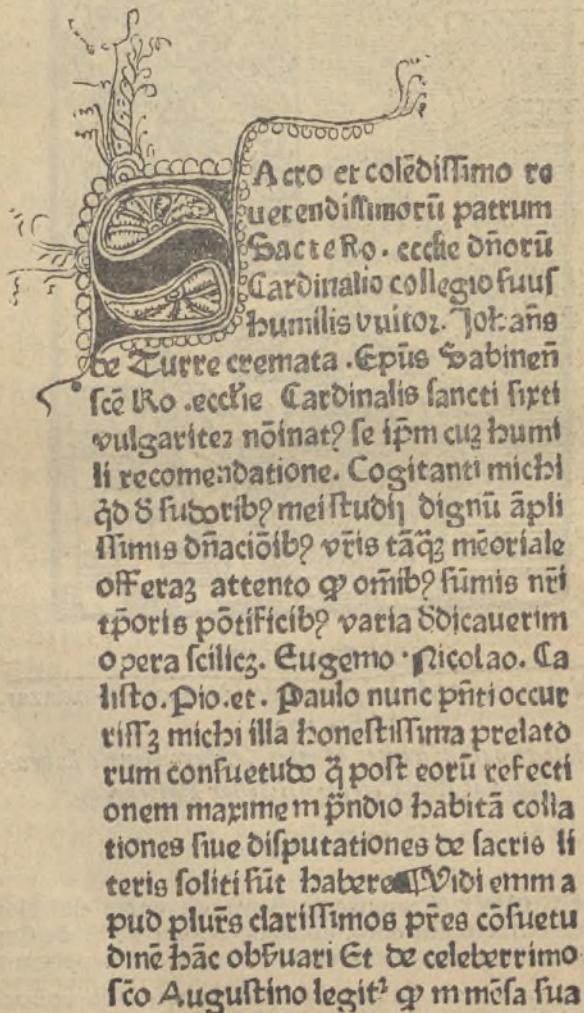 SAcro et colēdissimo re
uerendissimorū patrum
Sacte Ro. eccłie dn̄orū
Cardinaliū collegio suus
humilis vnitor. Johan̄s
de Turre cremata . Ep̄us Sabinen̄
sc̄e Ro . eccłie Cardinalis sancti sixti
vulgariteꝛ nōinatꝰ se ip̄m cuꝫ humi
li recomendatione. Cogitanti michi
q̄d ꝺ̄ sudoribꝰ mei studij dignū āpli
ssimis dn̄aciōibꝰ vr̄is tāq̄ꝫ mēoriale
offeraꝫ attento ꝙ om̄ibꝰ sūmis nr̄i
tp̄oris pōtificibꝰ varia ꝺ̄dicauerim
opera scilicꝫ. Eugenio . Nicolao. Ca
listo. Pio. et . Paulo nunc pn̄ti occur
rissꝫ michi illa honestissima prelato
rum consuetudo q̄ post eorū refecti
onem maxime in p̄ndio habitā colla
tiones siue disputationes de sacris li
teris soliti sūt habere ¶ Vidi enim a
pud plur̄s clarissimos pr̄es cōsuetu
dinē hāc obẜuari Et de celeberrimo
sc̄o Augustino legitᷣ ꝙ in mēsa sua